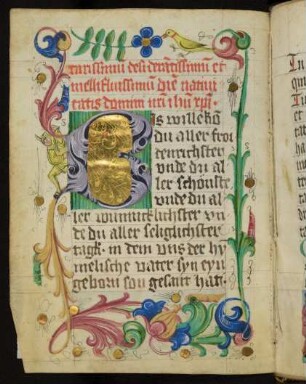 carissimi desideratissimi et
mellifluissimi die natiui
tatis domini nri ihu xpi.
Bis willekū
du aller froi
denrichsten
vnde du al
ler schönste
vnde du al
ler wunnicklichster vn
de du aller seliglichster
tagk. in dem vns der hy
melische vater syn eyn
geborn son gesant hat.